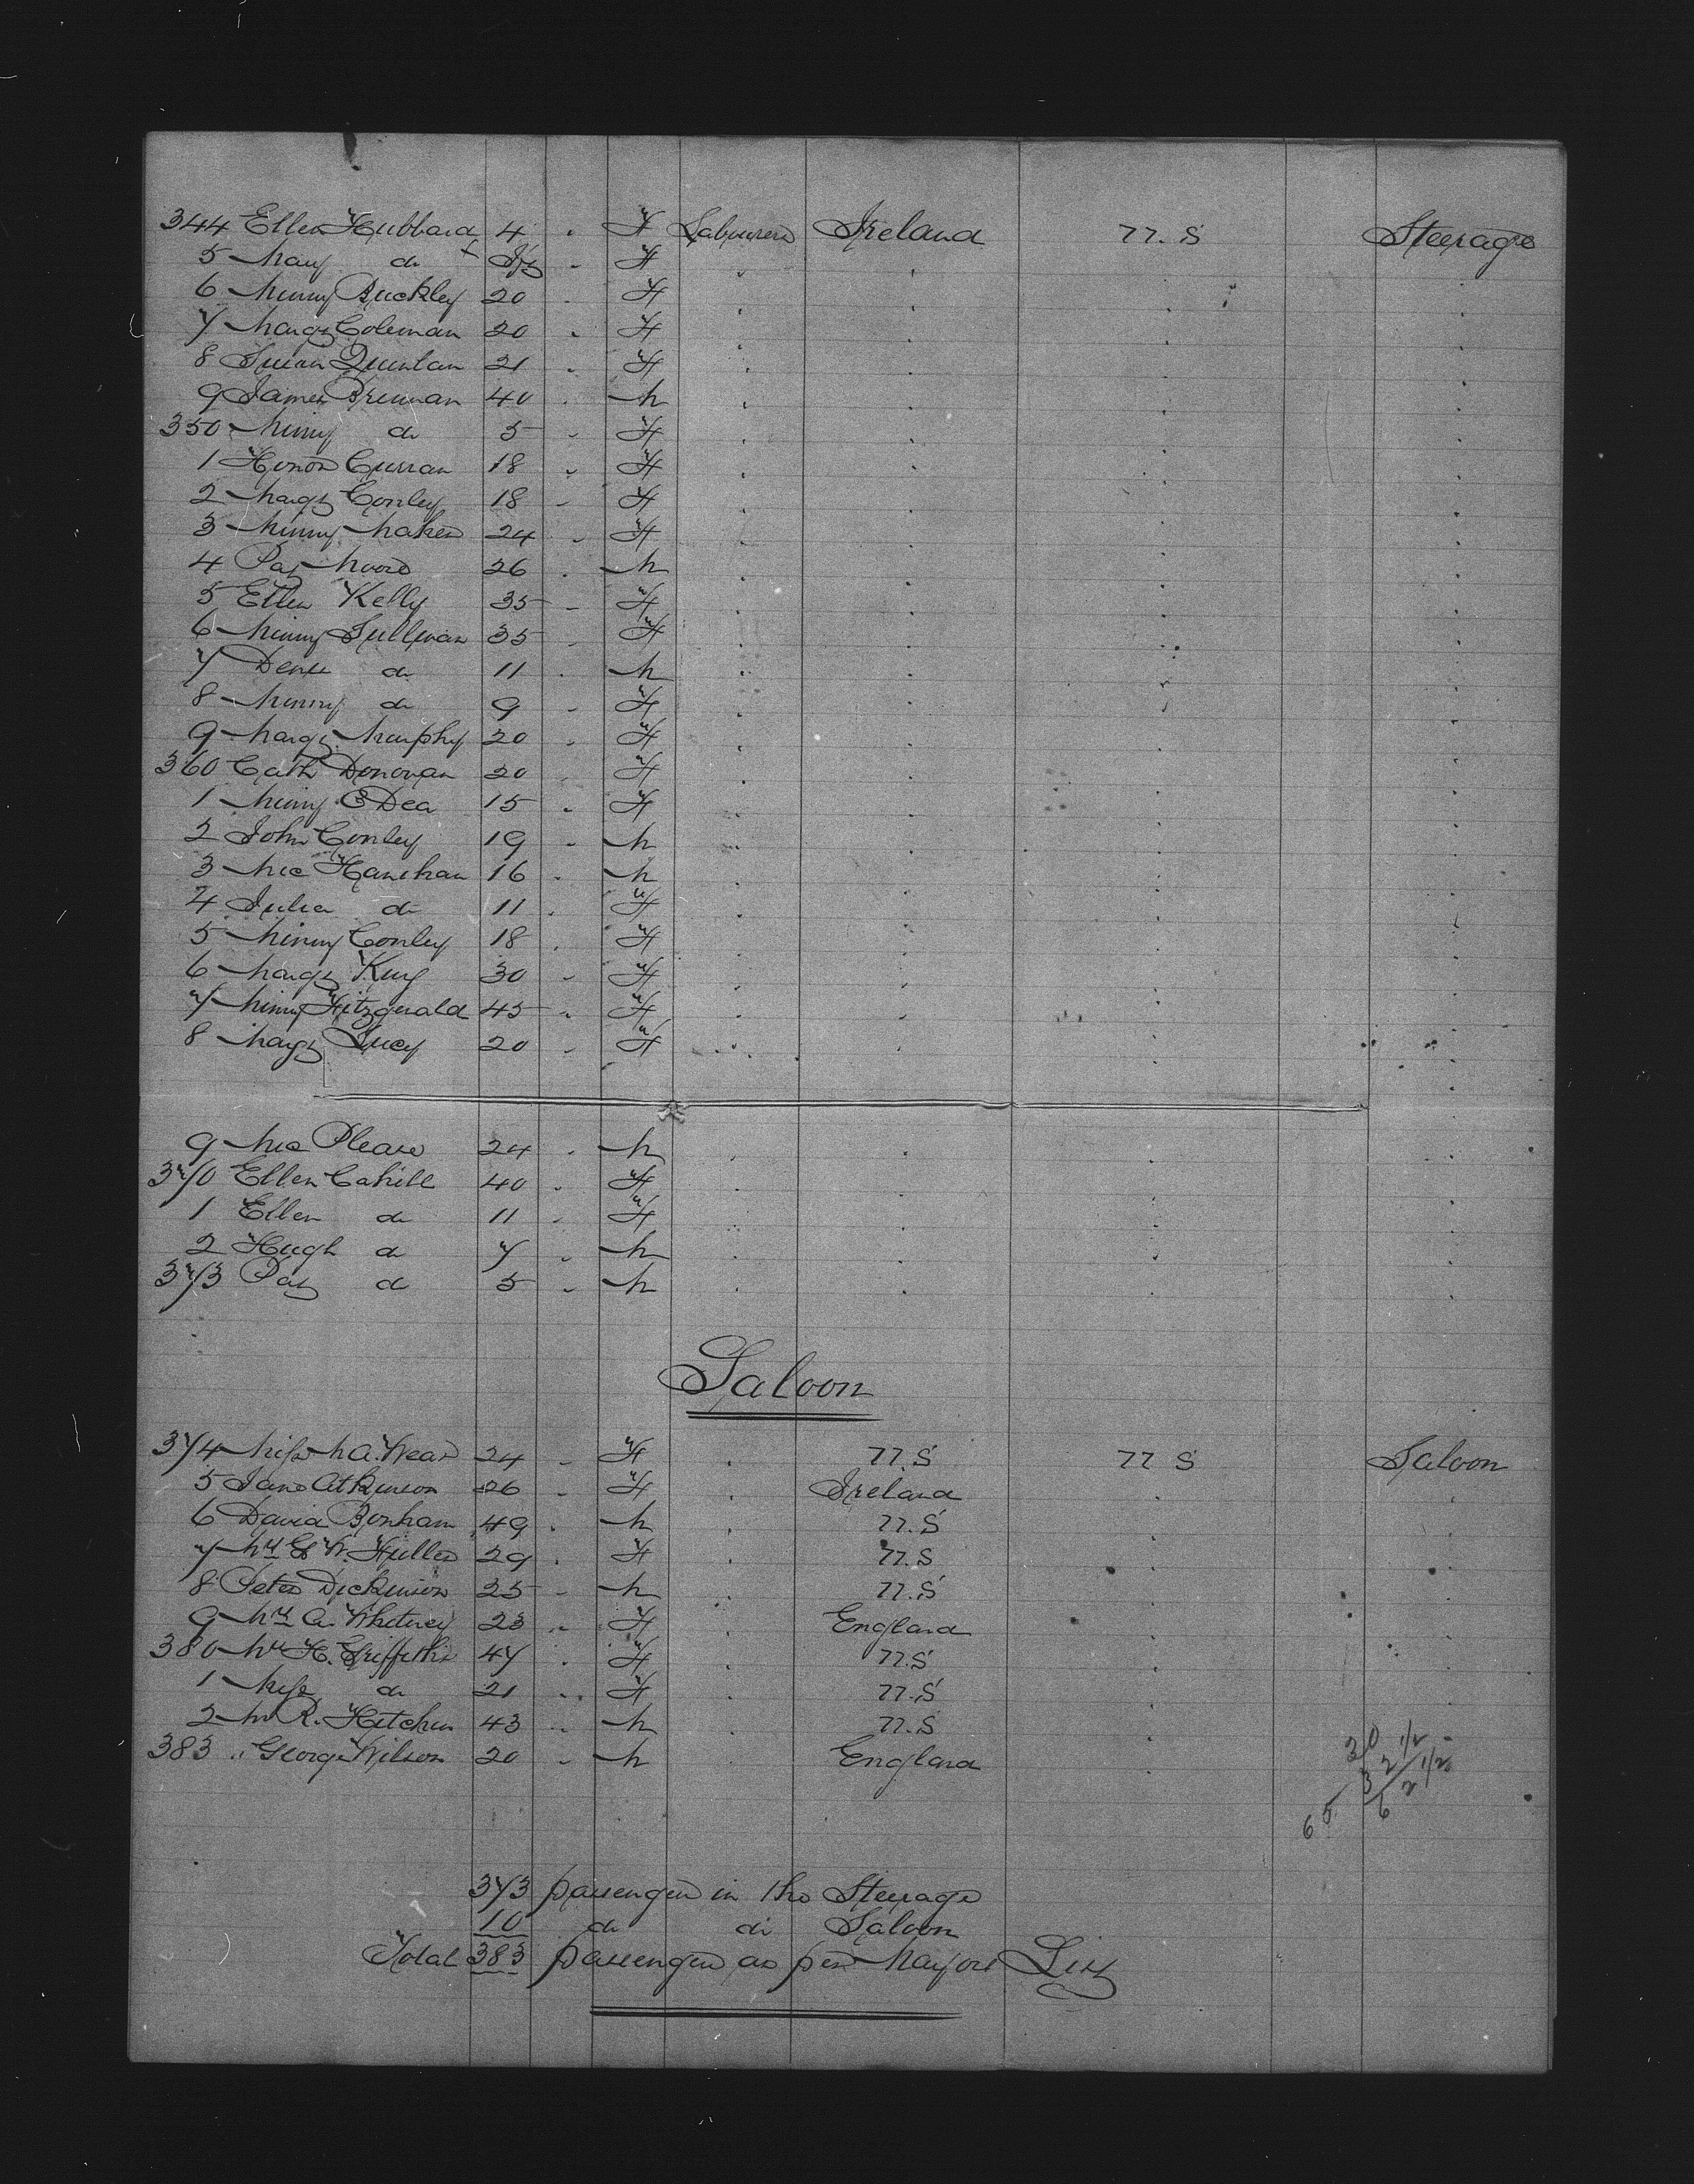 344 Ellen Hubbard 4 " F Labourers Ireland U.S Steerage
5 Mary do Inf " F
6 Minny Buckley 20 " F
7 Margt Coleman 20 " F
8 Susan Quinlan 21 " F
9 James Brennan 40 " M
350 Minny do 5 " F
1 Honor Curran 18 " F
2 Margt Conley 18 " F
3 Minny Maher 24 " F
4 Pat Moore 26 " M
5 Ellen Kelly 35 " F
6 Minny Sullivan 35 " F
7 Denis do 11 " M
8 Minny do 9 " F
9 Margt Murphy 20 " F
360 Cath Donovan 20 " F
1 Minny O'Dea 15 " F
2 John Conley 19 " M
3 Mic Hanehan 16 " M
4 Julia do 11 " F
5 Minny Conley 18 " F
6 Margt King 30 " F
7 Minny Fitzgerald 45 " F
8 Margt Lucy 20 " F
9 Mic Please 24 " M
370 Ellen Cahill 40 " F
1 Ellen do 11 " F
2 Hugh do 7 " M
373 Pat do 5 " M
Saloon
374 Miss M A. Wear 24 " F " U.S U S Saloon
5 Jane Atkinson 26 " F " Ireland
6 David Bonham 49 " M " U.S
7 Mrs G W. Fuller 29 " F " U.S
8 Peter Dickinson 25 " M " U.S
9 Mrs A. Whitney 23 " F " England
380 Mrs H. Griffiths 47 " F " U.S
1 Miss do 21 " F " U.S
2 Mr R. Hitchin 43 " M " U.S
383 " George Wilson 20 " M England
373 passengers in the Steerage
10 do do Saloon
Total 383 passengers as per Mayors List